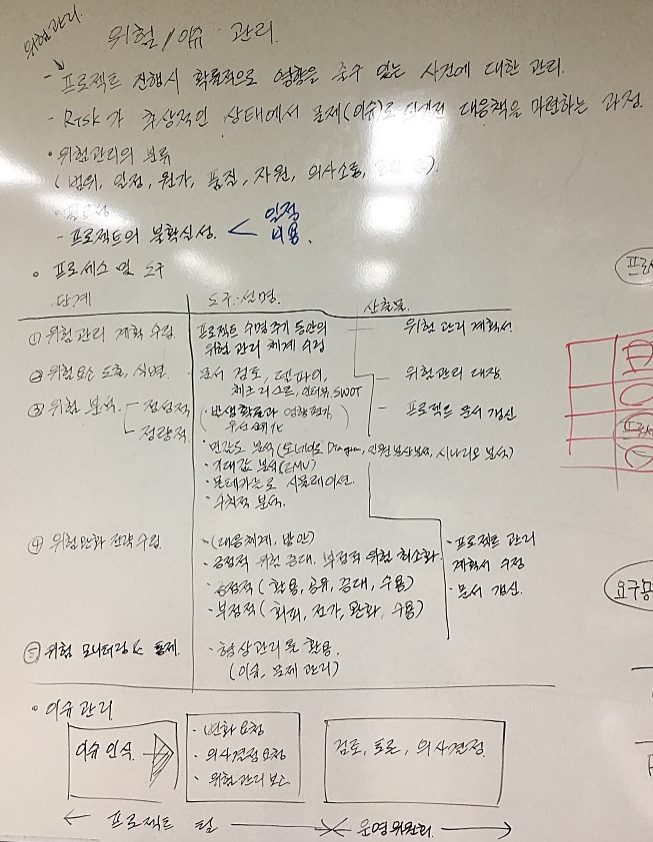 위험관리.
위험/이슈 관리.
- 프로젝트 진행시 확률적으로 영향을 줄수 있는 사건에 대한 관리.
- Risk가 추상적인 상태에서 문제(이슈)로 되기전 대응책을 마련하는 과정.
• 위험관리의 분류
(범위, 일정, 원가, 품질, 자원, 의사소통,
- 프로젝트의 불확실성. < 일정
비용.
프로세스 및 도구
단계 도구·설명. 산출물.
① 위험관리 계획 수립. 프로젝트 수명주기 동안의 위험 관리 계획서
위험관리 체계 수립
② 위험요소 도출, 식별. 문서 검토, 델파이, - 위험관리 대장.
체크리스트, 인터뷰, SWOT
③ 위험 분석. 정성적 (·발생확률과 영향평가, - 프로젝트 문서 갱신
우선순위화)
정량적. · 민감도 분석(토네이도 Diagram, 분석, 시나리오 분석)
· 기대값 분석(EMV)
· 몬테카를로 시뮬레이션.
· 수치적 분석.
④ 위험완화 전략수립. -(대응체계, 방안) - 프로젝트 관리
· 긍정적 위험 증대. 부정적 위험 최소화. 계획서 수정
· 긍정적(활용, 공유, 증대, 수용) · 문서 갱신.
· 부정적(회피, 전가, 완화, 수용)
⑤ 위험 모니터링 & 통제. - 형상관리 툴 활용.
(이슈, 문제 관리)
이슈관리
이슈 인식. · 변화 요청 검토, 토론, 의사결정.
· 의사결정 요청
· 위험관리 보고
프로젝트 팀 운영위원회.
요구